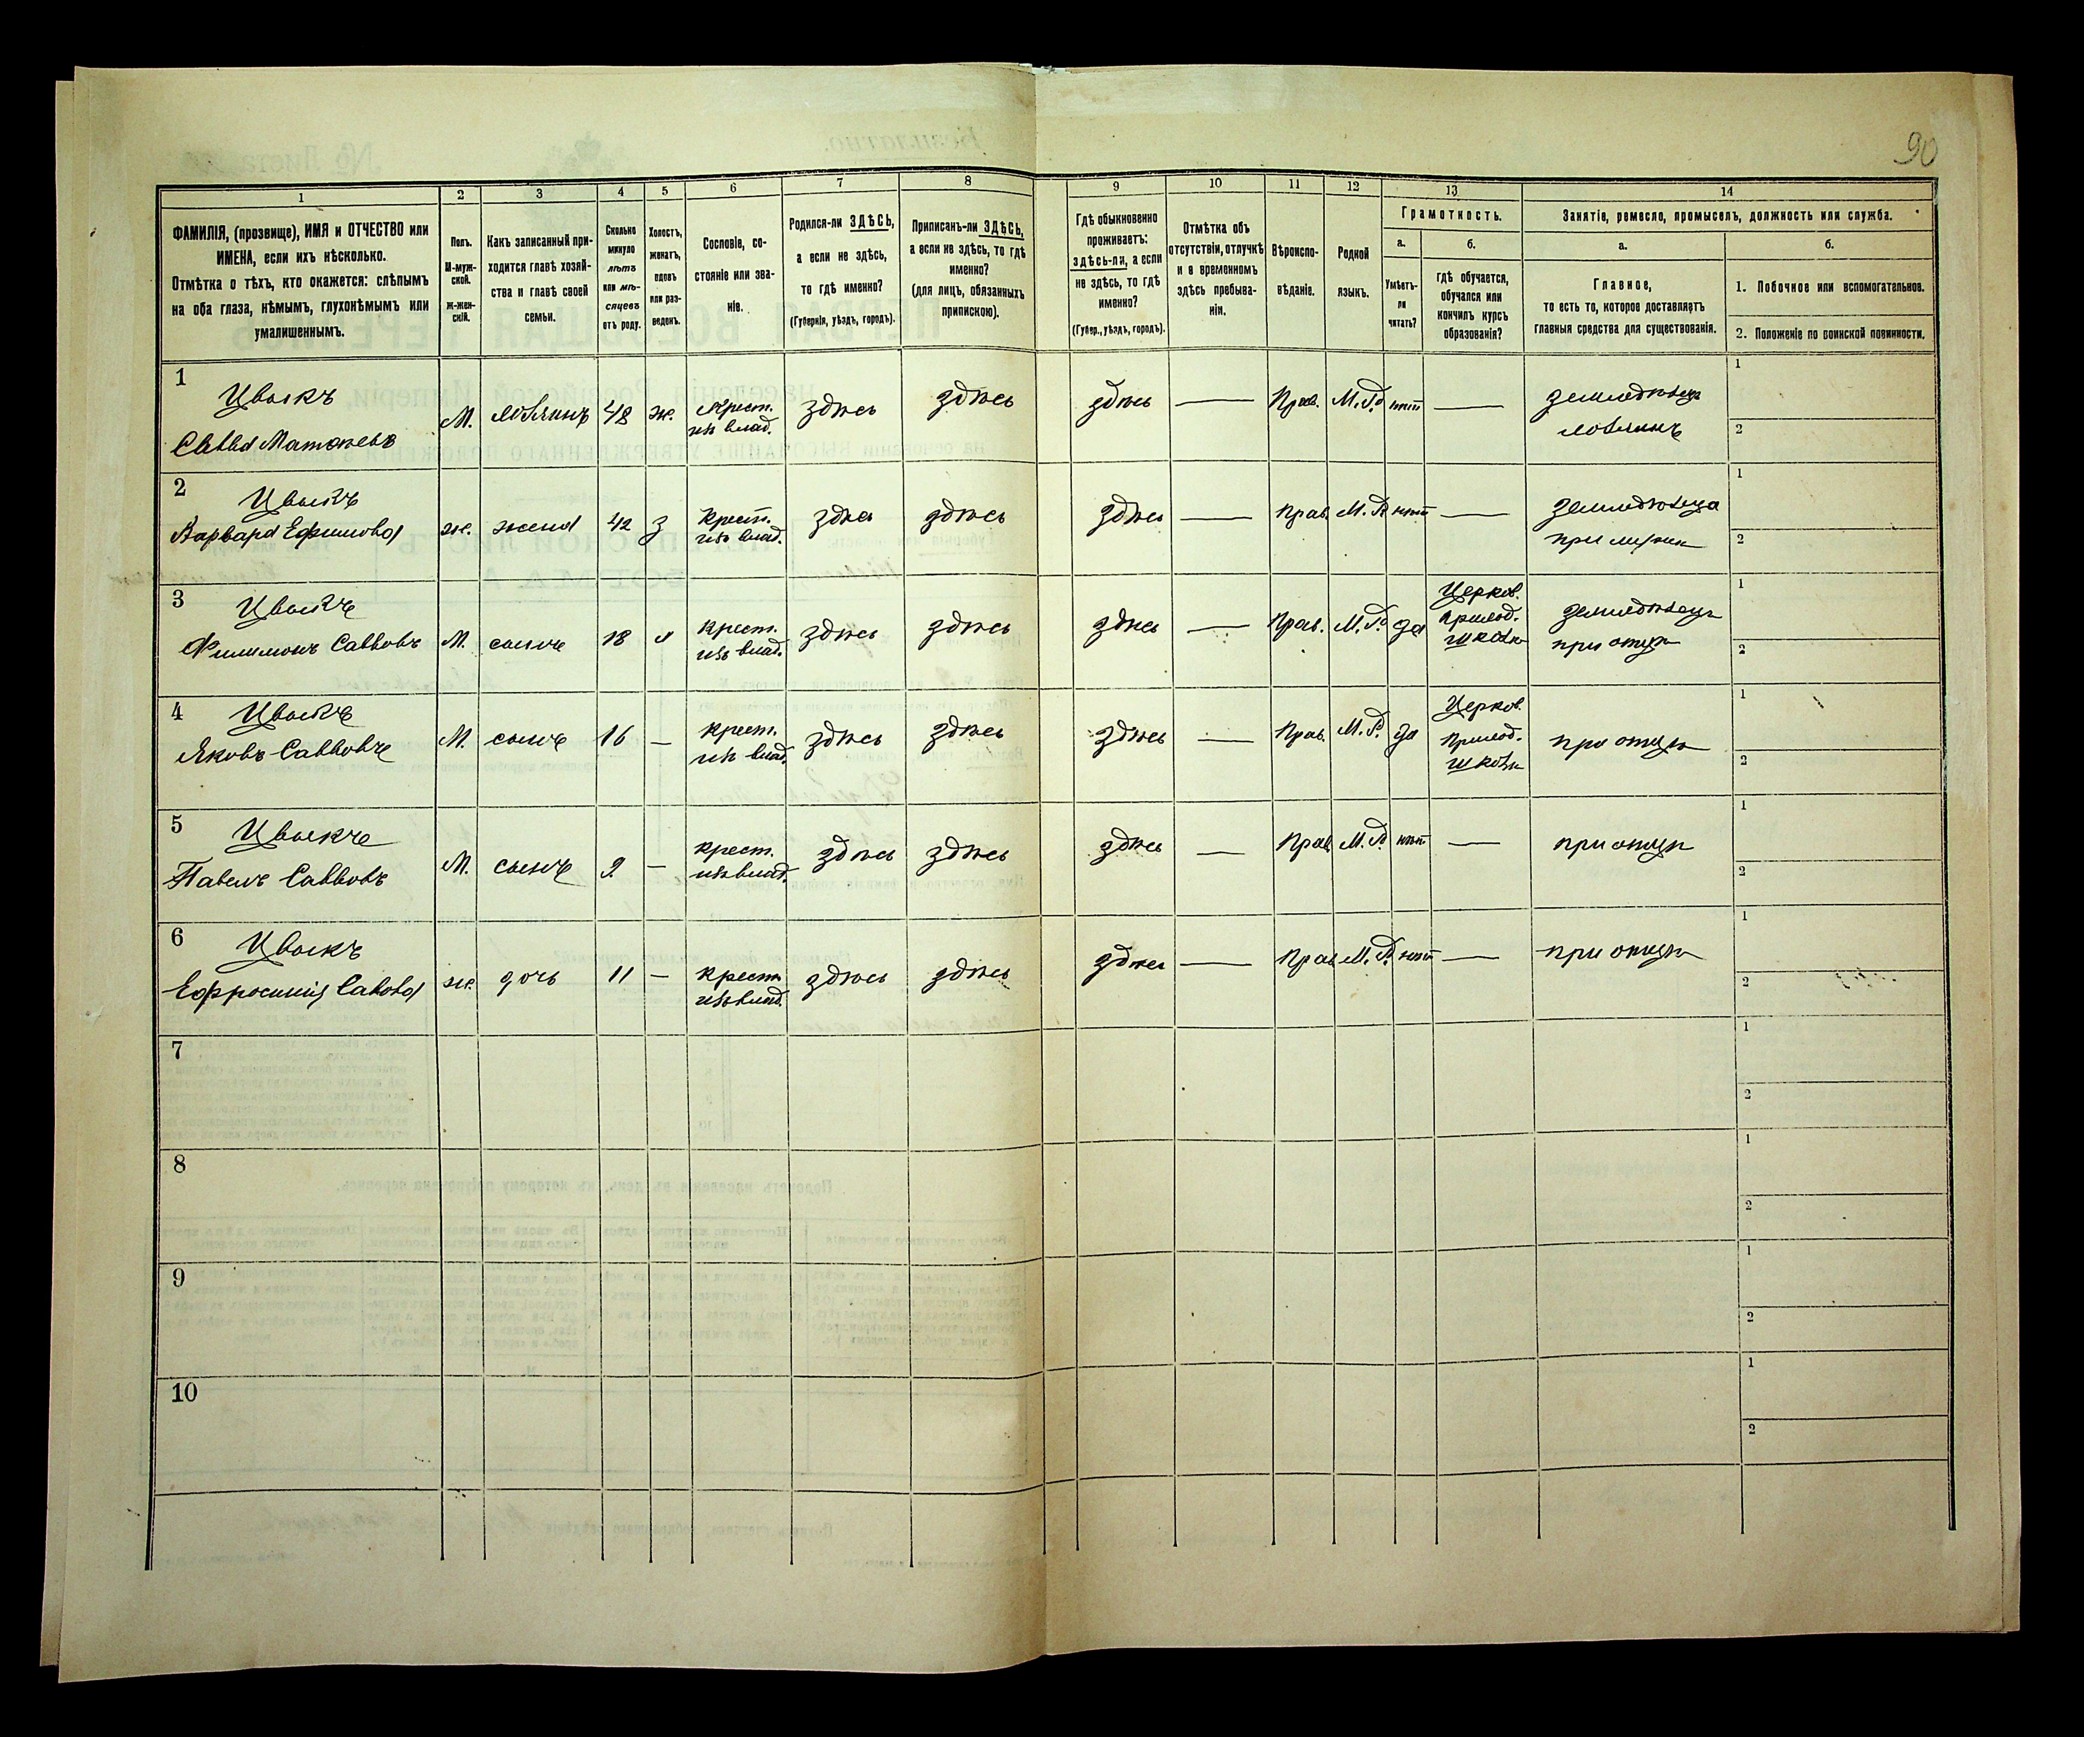 90
1 2 3 4 5 6 7 8 9 10 11 12 13 14
ФАМИЛІЯ, (прозвище), ИМЯ и ОТЧЕСТВО или
ИМЕНА, если ихъ нѣсколько.
Отмѣтка о тѣхъ, кто окажется: слѣпымъ
на оба глаза, нѣмымъ, глухонѣмымъ или
умалишеннымъ.
Полъ.
М-муж-
ской.
ж-жен-
скій.
Какъ записанный при-
ходится главѣ хозяй-
ства и главѣ своей
семьи.
Сколько
минуло
лѣтъ
или мѣ-
сяцевъ
отъ роду.
Холостъ,
женатъ,
вдовъ
или раз-
веденъ.
Сословіе, со-
стояніе или зва-
ніе.
Родился-ли ЗДѢСЬ,
а если не здѣсь,
то гдѣ именно?
(Губернія, уѣздъ, городъ).
Приписанъ-ли ЗДѢСЬ,
а если не здѣсь, то гдѣ
именно?
(для лицъ, обязанныхъ
припискою).
Гдѣ обыкновенно
проживаетъ:
здѣсь-ли, а если
не здѣсь, то гдѣ
именно?
(Губер., уѣздъ, городъ).
Отмѣтка объ
отсутствіи, отлучкѣ
и о временномъ
здѣсь пребыва-
ніи.
Вѣроиспо-
вѣданіе.
Родной
языкъ.
Грамотность.
а.
Умѣетъ-
ли
читать?
б.
гдѣ обучается,
обучался или
кончилъ курсъ
образованія?
Занятіе, ремесло, промыселъ, должность или служба.
а.
Главное,
то есть то, которое доставляетъ
главныя средства для существованія.
б.
1. Побочное или вспомогательное.
2. Положеніе по воинской повинности.
1
Цвыкъ
Савва Матѳѣевъ
М.
хозяинъ
48
ж.
Крест.
изъ влад.
здѣсь
здѣсь
здѣсь
—
Прав.
М.Р.
нѣт
—
земледѣлец
хозяинъ
1
2
2
Цвыкъ
Варвара Ефимова
ж.
жена
42
з
Крест.
изъ влад.
здѣсь
здѣсь
здѣсь
—
Прав.
М.Р.
нѣт
—
земледѣлца
при мужи
1
2
3
Цвыкъ
Филимонъ Саввовъ
М.
сынъ
18
х
Крест.
изъ влад.
здѣсь
здѣсь
здѣсь
—
Прав.
М.Р.
да
Церков.
приход.
школѣ
земледѣлец
при отцѣ
1
2
4
Цвыкъ
Яковъ Саввовъ
М.
сынъ
16
—
крест.
изъ влад.
здѣсь
здѣсь
здѣсь
—
Прав.
М.Р.
да
Церков.
приход.
школѣ
при отцѣ
1
2
5
Цвыкъ
Павелъ Саввовъ
М.
сынъ
9
—
крест.
изъ влад.
здѣсь
здѣсь
здѣсь
—
Прав.
М.Р.
нѣт
—
при отцѣ
1
2
6
Цвыкъ
Ефросинія Савова
ж.
дочь
11
—
крест
изъ влад.
здѣсь
здѣсь
здѣсь
—
Прав
М.Р.
нѣт
—
при отцѣ
1
2
7
1
2
8
1
2
9
1
2
10
1
2